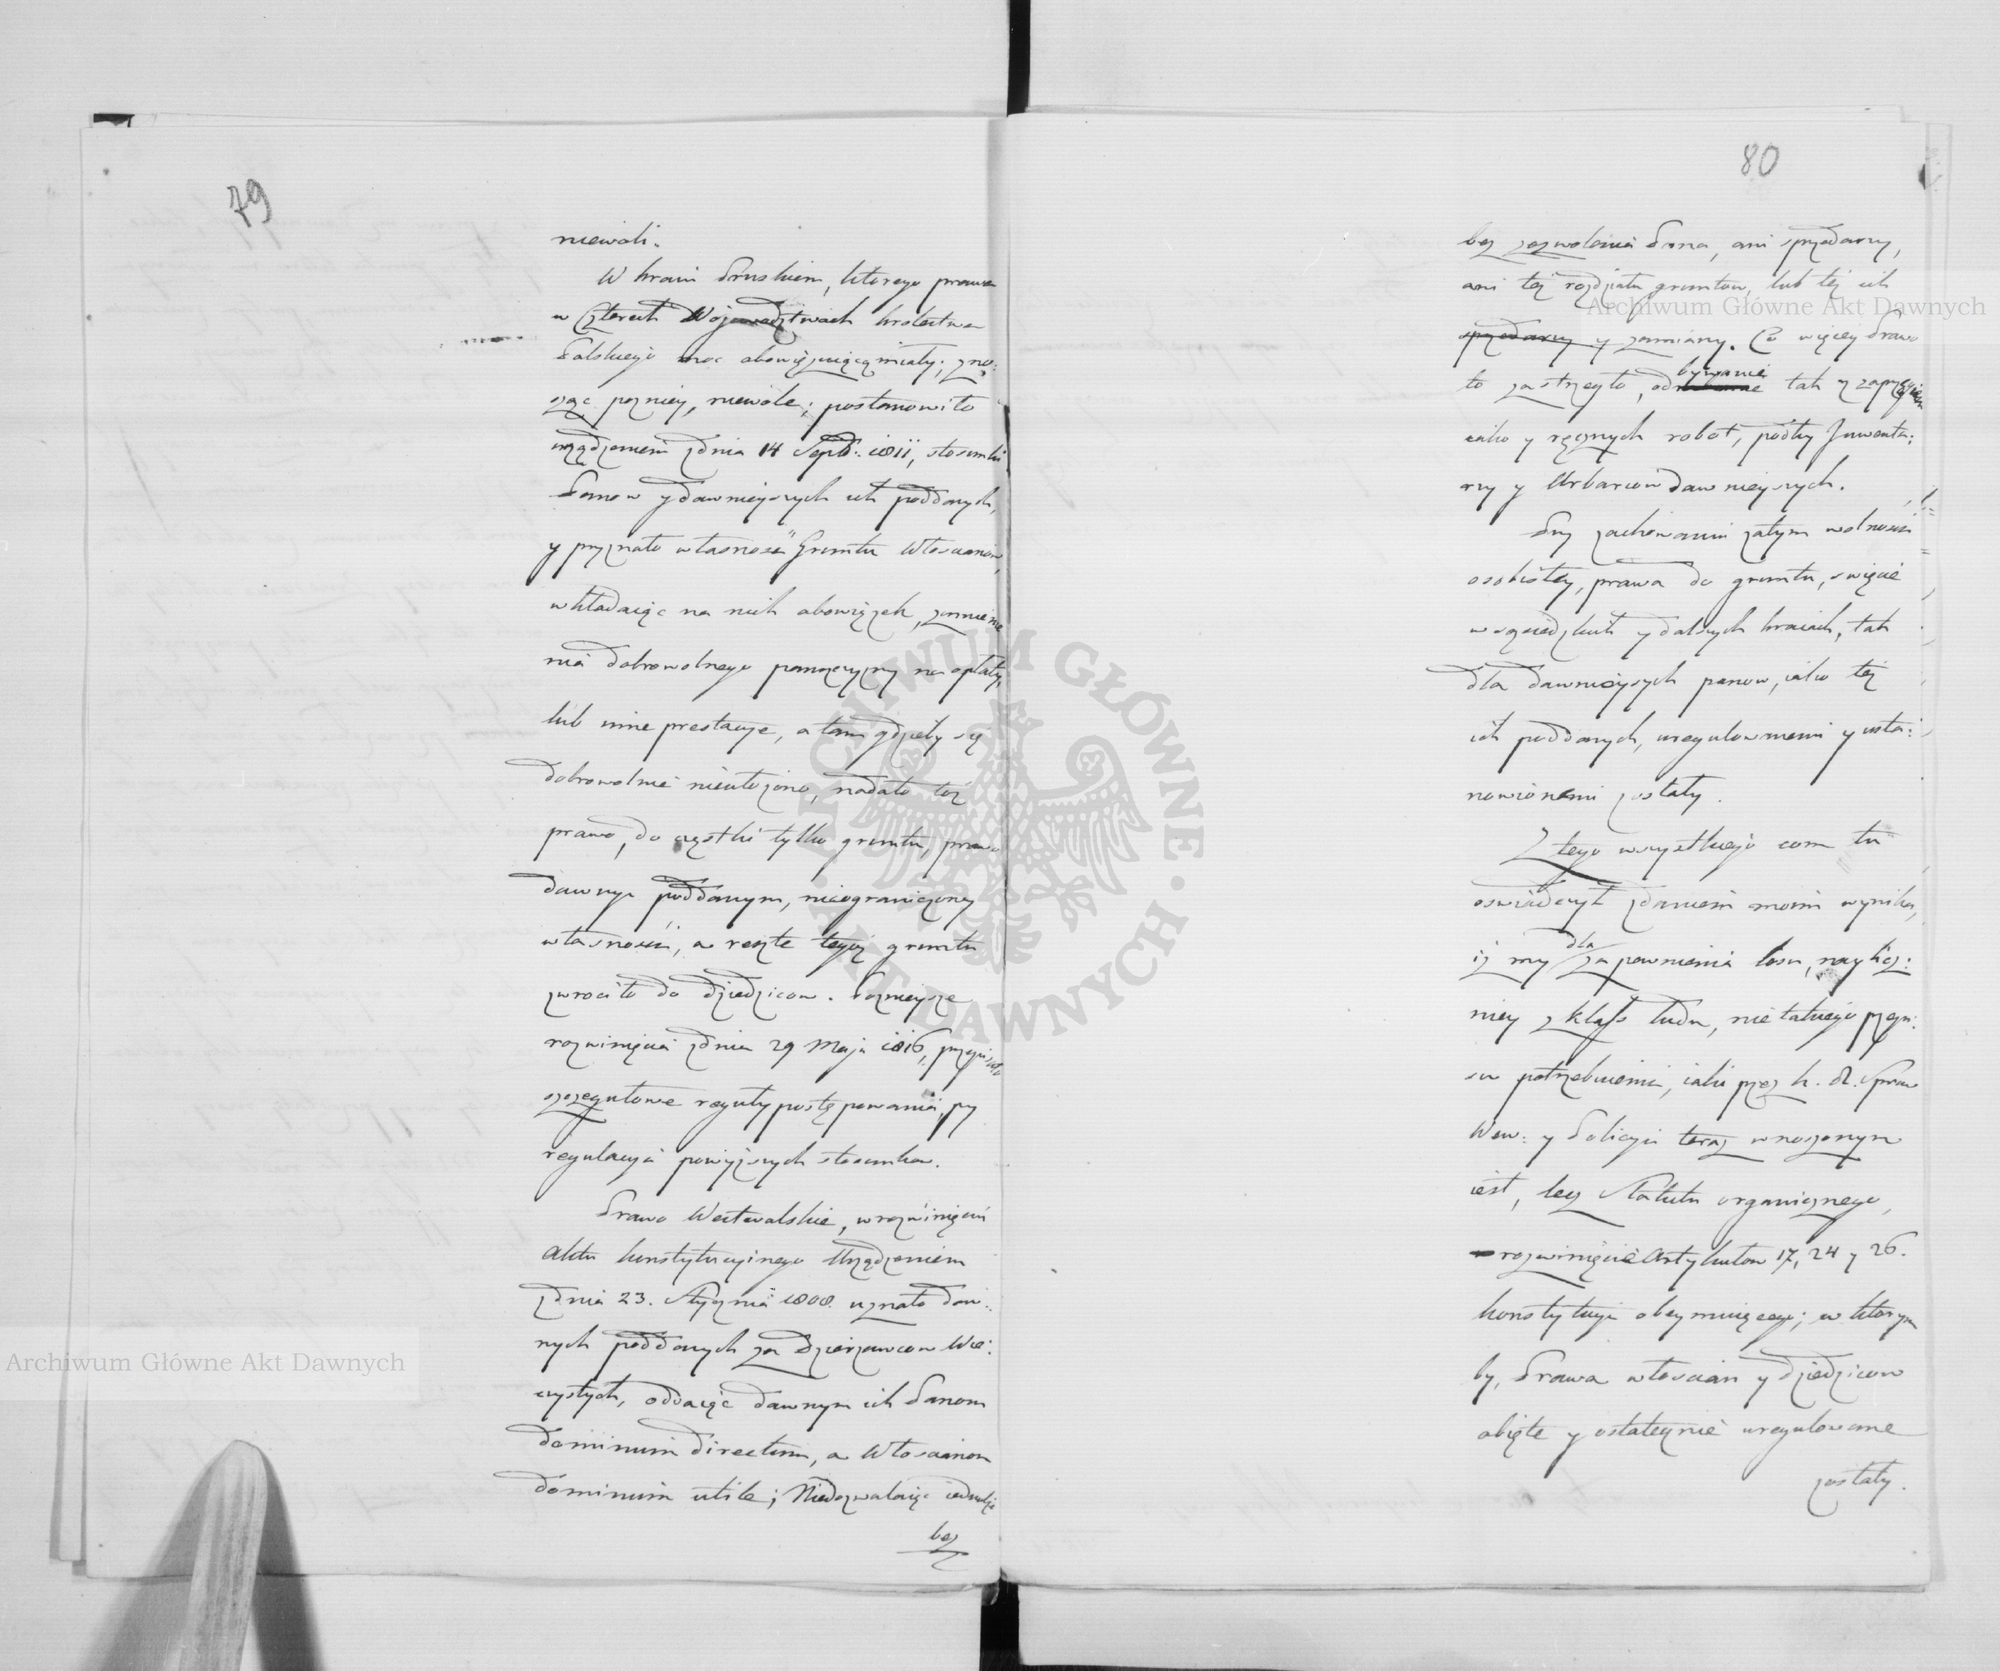 79
niewoli.
W kraiu Pruskiem, ktorego prawa
w czterech Wojewodztwach krolestwa
Polskiego moc obowięzuiącą miały, zno:
sząc pozniey, niewole, postanowiło
urządzeniem zdnia 14 Sept: 1811, stosunki
Panow y dawnieyszych ich poddanych,
y przyznało własność Gruntu Włoscianow,
wkładaiąc na nich obowiązek, zamienie
nia dobrowolnego pańszczyzny na opłaty,
lub inne prestacye, a tam gdzieby się
dobrowolnie nieułożono, nadało też
prawo, do cząstki tylko gruntu, prawo
dawnym poddanym, nieograniczoney
własności, a resztę tegoż gruntu
zwrociło do dziedzicow. Poznieysze
rozwinięcia zdnia 29 Maja 1816, przepisało
szczegułowe reguły postępowania, przy
regulacyi powyższych stosunkow.
Prawo Westwalskie, w rozwinięciu
Aktu konstytucyinego Urządzeniem
zdnia 23. Stycznia 1808. uznało daw:
nych poddanych za Dzierzawcow Wie:
czystych, oddaiąc dawnym ich Panom
dominium directum, a Włoscianom
dominium utile; Niedozwalaiąc iednakże
bez
80
bez zezwolenia Pana, ani sprzedaży,
ani też rozdziału gruntow, lub też ich
sprzedaży y zamiany. Co więcey Prawo
bywanie
to zastrzegło, od tak zaprzężnych
iako y ręcznych robot, podług Inwenta:
rzy y Urbarzow dawnieyszych.
Przy zachowaniu zatym wolności
osobistey, prawa do gruntu, swięcie
w sąsiedzkich y dalszych kraiach, tak
dla dawnieyszych panow, iako też
ich poddanych, uregulowanemi y usta:
nowionemi zostały.
Z tego wszystkiego com tu
oswiadczył zdaniem moim wynika,
dla
iż my zapewnienia losu, naylicz:
niey z klass ludu, nie takiego przepi:
su potrzebuiemy, iaki przez K. R. Spraw
Wew: y Policyi teraz wnoszonym
iest, lecz Statutu organicznego,
rozwinięcie Artykułow 17, 24 y 26.
konstytucyi obeymuiącego; w ktorym
by, Prawa włoscian y dziedzicow
obięte y ostatecznie uregulowane
zostały.
Archiwum Główne Akt Dawnych
Archiwum Główne Akt Dawnych
ARCHIWUM GŁÓWNE · AKT DAWNYCH ·